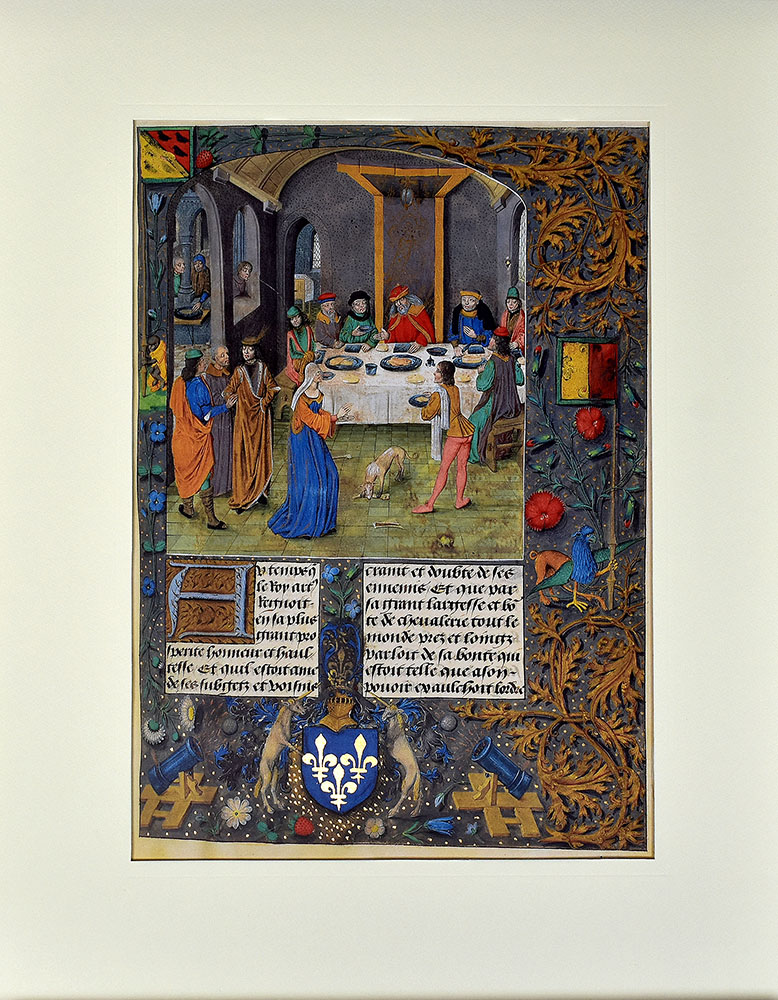 Au temps q
le Roy art
Regnoit
en sa plus
grant pro
sperite honneur et haul
tesse Et quil estoit ame
de ses subgetz et voisins
craint et doubte de ses
ennemis Et que par
sa grant largesse et bo
te de chevalerie tout le
monde prez et loingz
parloit de sa bonte qui
estoit telle que a son
povoir exaulchoit lordre